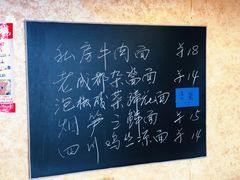 私房牛肉面 ¥18
老成都杂酱面 ¥14
泡椒酸菜蹄花面
烟笋三鲜面 ¥15
四川鸡丝凉面 ¥14